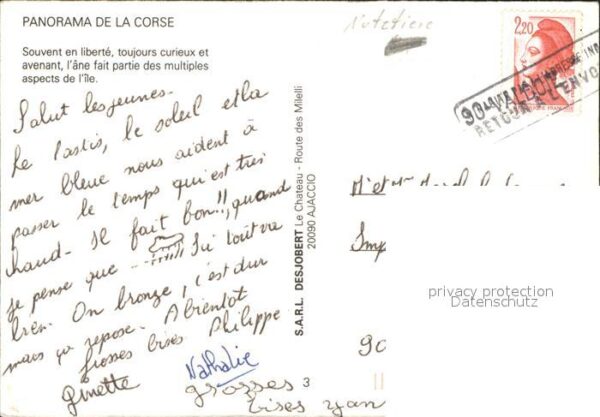 PANORAMA DE LA CORSE
Souvent en liberté, toujours curieux et
avenant, l'âne fait partie des multiples
aspects de l'île.
Salut les jeunes.
Le Pastis, le soleil et la
mer bleue nous aident à
passer le temps qui est très
chaud - Il fait bon!!, quand
je pense que ... Ici tout va
bien. On bronze, c'est dur
mais ça repose. A bientôt
Grosses bises Philippe
Ginette
Nathalie
grosses
bises yan
S.A.R.L. DESJOBERT Le Chateau - Route des Milelli
20090 AJACCIO
3
2,20
90 VALDOIE
RETOUR A L'ENVO
M et Mme
Imp
90
privacy protection
Datenschutz